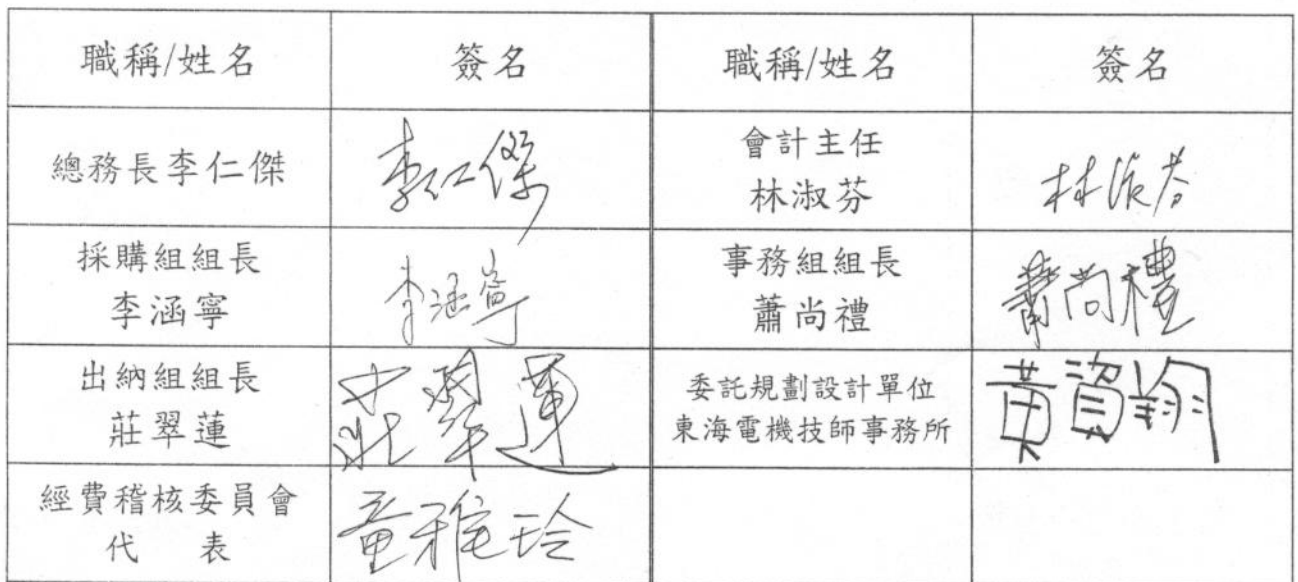 職稱/姓名 簽名 職稱/姓名 簽名
總務長李仁傑 李仁傑 會計主任
林淑芬 林淑芬
採購組組長
李涵寧 李涵寧 事務組組長
蕭尚禮 蕭尚禮
出納組組長
莊翠蓮 莊翠蓮 委託規劃設計單位
東海電機技師事務所 黃資翔
經費稽核委員會
代 表 童雅玲